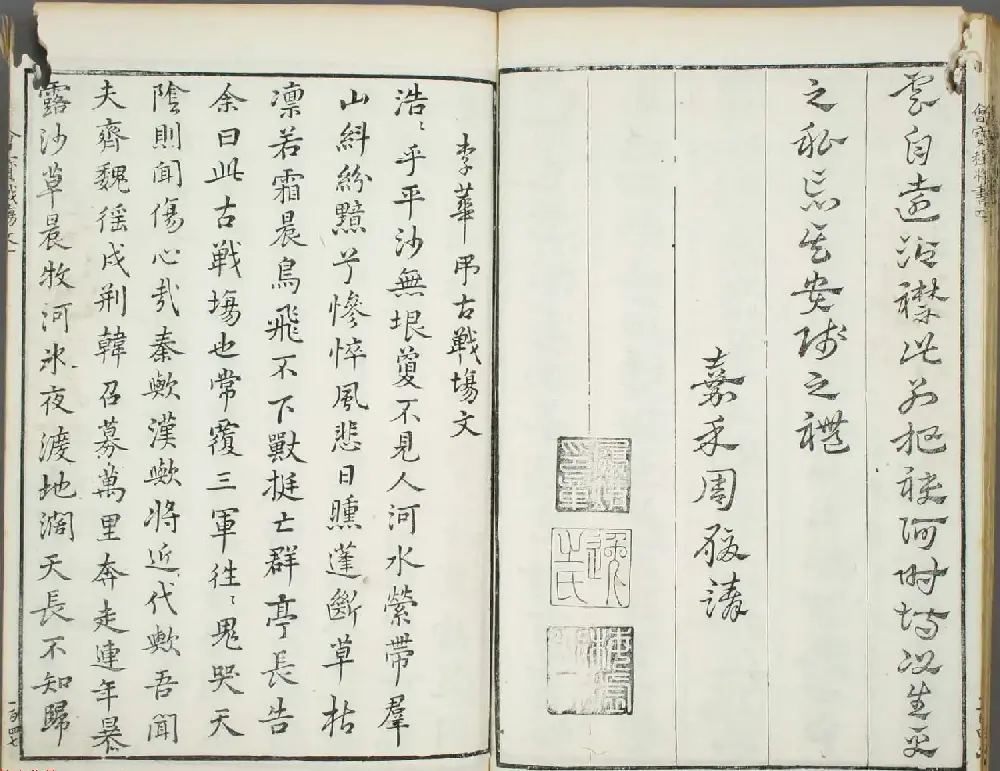 雲自遠沾襟此别把袂何時
之私忘其貴賤之禮
嘉禾周履靖
李華吊古戰塲文
浩〻乎平沙無垠敻不見人河水縈帶羣
山糾紛黯兮慘悴風悲日曛蓬斷草枯
凛若霜晨鳥飛不下獸挺亡群亭長告
余曰此古戰塲也常覆三軍往〻鬼哭天
陰則聞傷心哉秦歟漢歟將近代歟吾聞
夫齊魏徭戍荆韓召募萬里奔走連年暴
露沙草晨牧河氷夜渡地濶天長不知歸